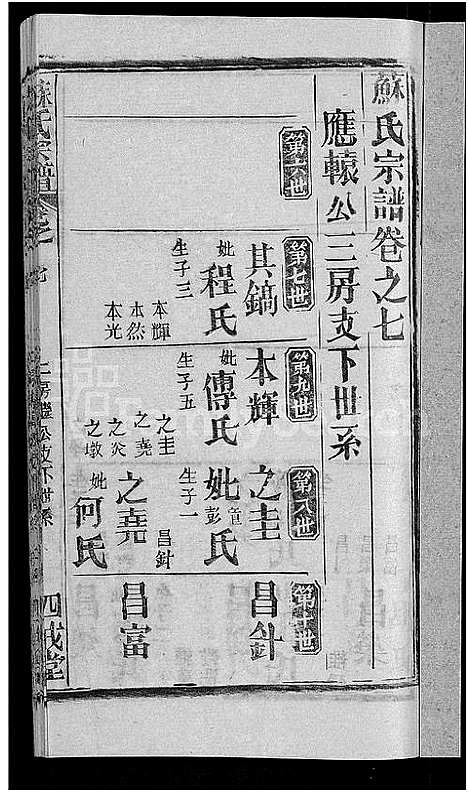 蘇氏宗譜卷之七
應轅公三房支下世系
第六世
第七世
第九世
第八世
第十世
其鎬
妣程氏
生子三
本輝
本然
本光
本輝
妣傅氏
生子五
之圭
之堯
之炎
之墩
之圭
妣氏
生子一
昌針
之堯
妣何氏
昌針
昌富
蘇氏宗譜
四戒堂